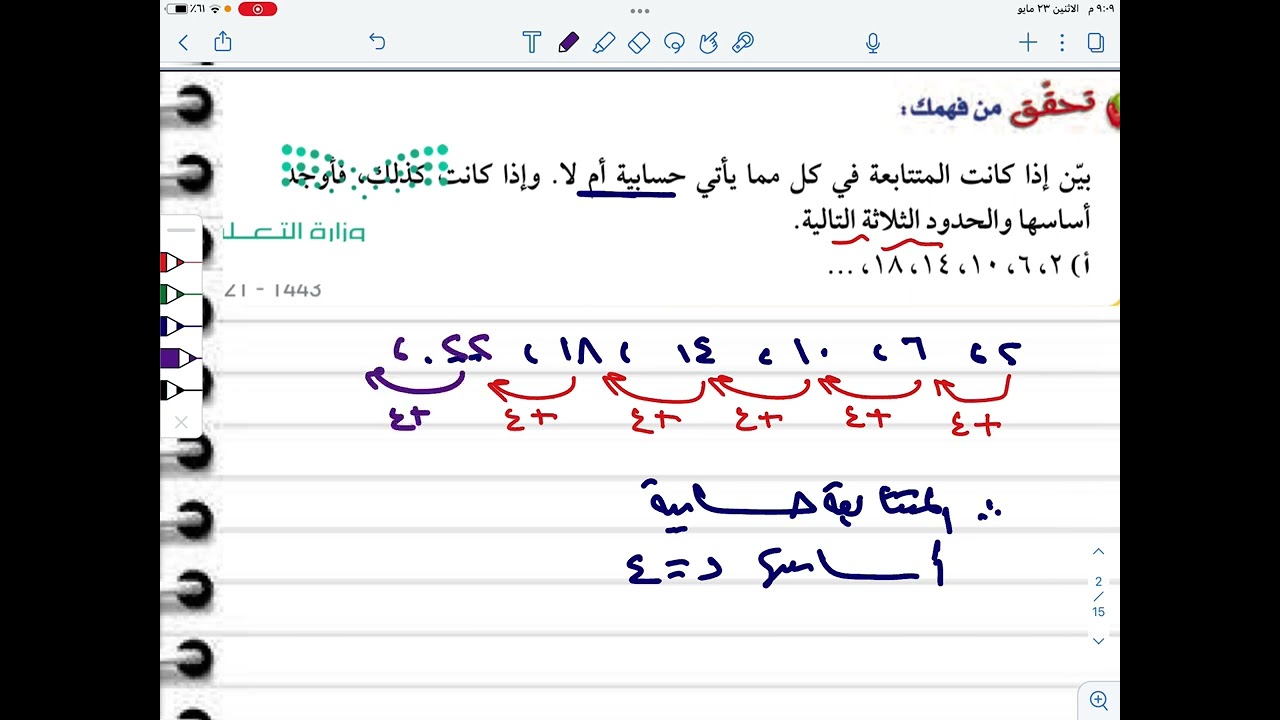 ٩:٠٩ م الاثنين ٢٣ مايو
٦١٪
تحقّق من فهمك:
بيّن إذا كانت المتتابعة في كل مما يأتي حسابية أم لا. وإذا كانت كذلك، فأوجد
أساسها والحدود الثلاثة التالية.
وزارة التعـلـ
أ) ٢، ٦، ١٠، ١٤، ١٨، ...
21 - 1443
٢، ٦، ١٠، ١٤، ١٨، ٢٢،
+٤ +٤ +٤ +٤ +٤ +٤
∴ المتتابعة حسابية
أساسها د = ٤
2
/
15